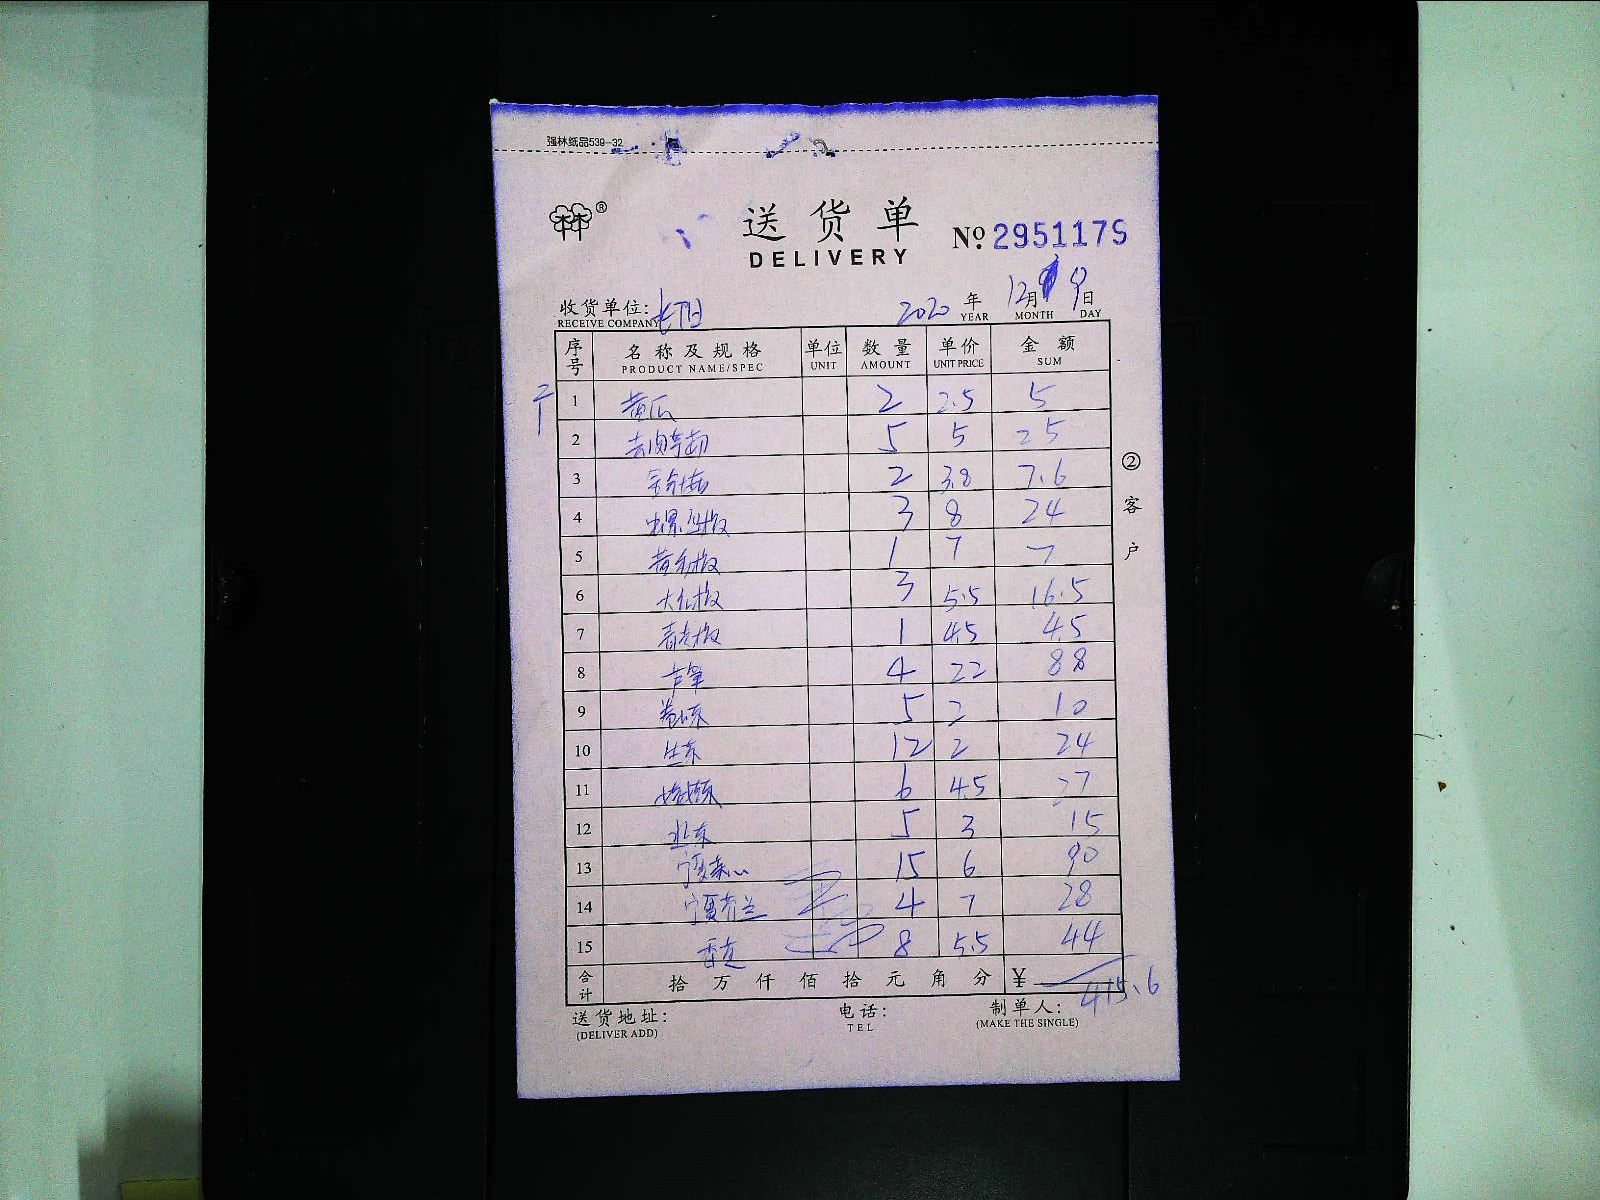 强林纸品539-32
林林®
送货单
DELIVERY
No. 2951175
收货单位:
RECEIVE COMPANY
2020年12月9日
YEAR MONTH DAY
序号 名称及规格 单位 数量 单价 金额
PRODUCT NAME/SPEC UNIT AMOUNT UNIT PRICE SUM
1 黄瓜 2 2.5 5
2 5 5 25
3 2 3.8 7.6
4 螺丝椒 3 8 24
5 黄彩椒 1 7 7
6 大红椒 3 5.5 16.5
7 青尖椒 1 4.5 4.5
8 芦笋 4 22 88
9 5 2 10
10 生菜 12 2 24
11 6 4.5 27
12 5 3 15
13 宁夏菜心 15 6 90
14 宁夏芥兰 4 7 28
15 8 5.5 44
合计 拾万仟佰拾元角分 ¥ 415.6
送货地址: 电话: 制单人:
(DELIVER ADD) TEL (MAKE THE SINGLE)
②客户